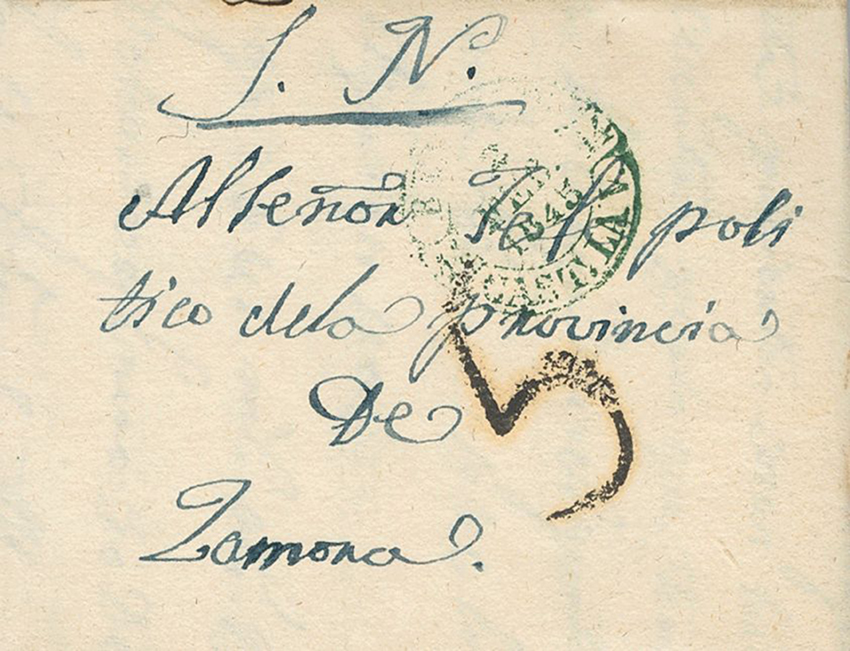 S. N.
Al Señor Jefe poli
tico dela provincia
De
Zamora.
1845
CAST. LA V.
5